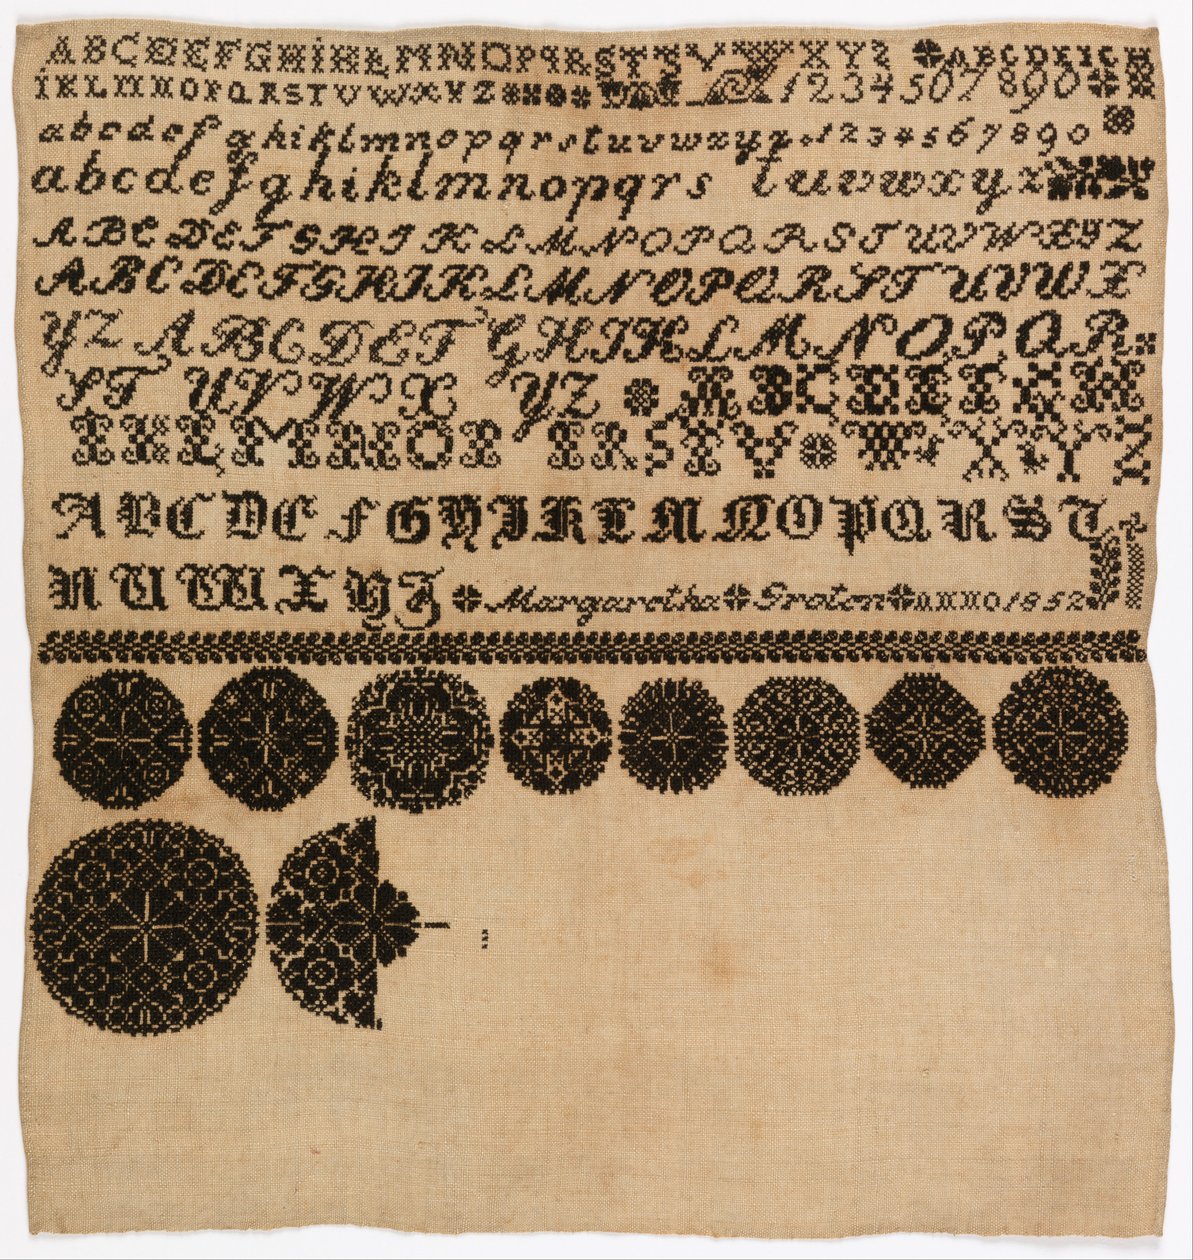 ABCDEFGHIKLMNOPQRSTUVWXYZ ABCDEFGH
IKLMNOPQRSTVWXYZ 1234507890
abcdefghiklmnopqrstuvwxyz.1234567890
abcdefghiklmnopqrs tuvwxyz
ABCDEFGHIKLMNOPQRSTUVWXYZ
ABCDEFGHIKLMNOPQRSTUVWX
YZ ABCDEFGHIKLMNOPQR
STUVWX YZ ABCDEFGH
IKLMNOP RSTV W XYZ
ABCDEFGHIKLMNOPQRST
UWXYZ Margaretha Graton ANNO 1852